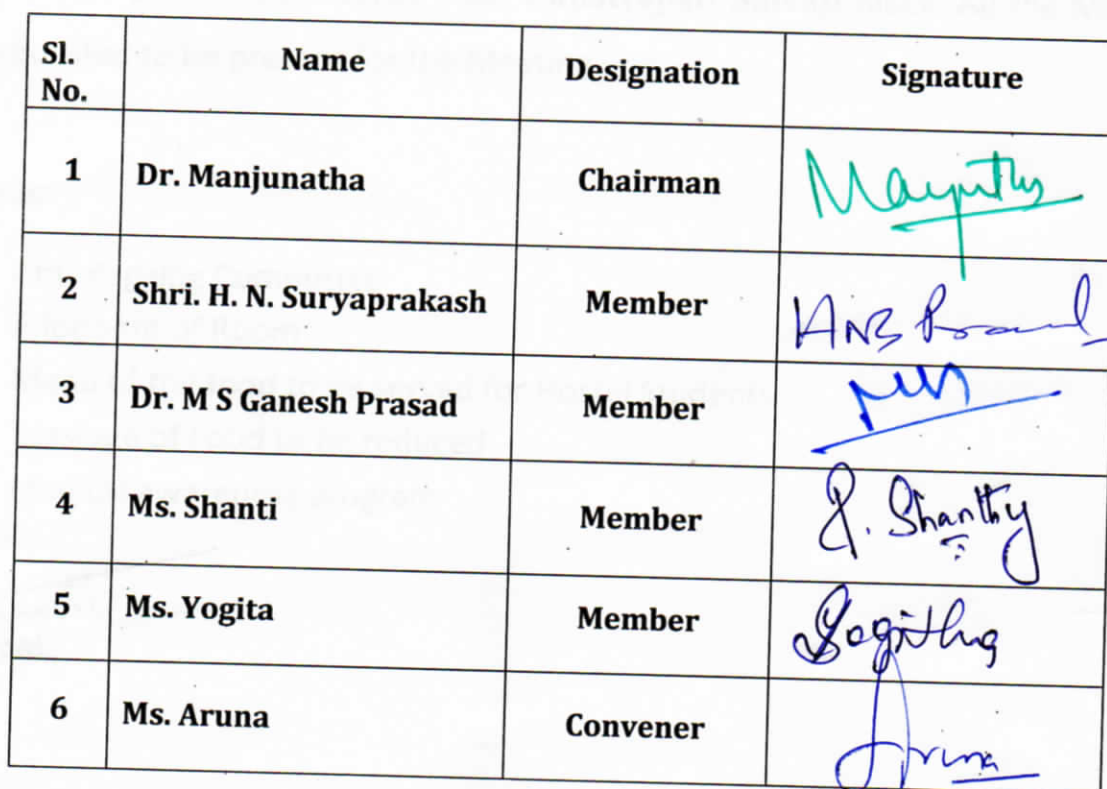 Sl. No. Name Designation Signature
1 Dr. Manjunatha Chairman
2 Shri. H. N. Suryaprakash Member
3 Dr. M S Ganesh Prasad Member
4 Ms. Shanti Member Shanthy
5 Ms. Yogita Member Yogitha
6 Ms. Aruna Convener Aruna